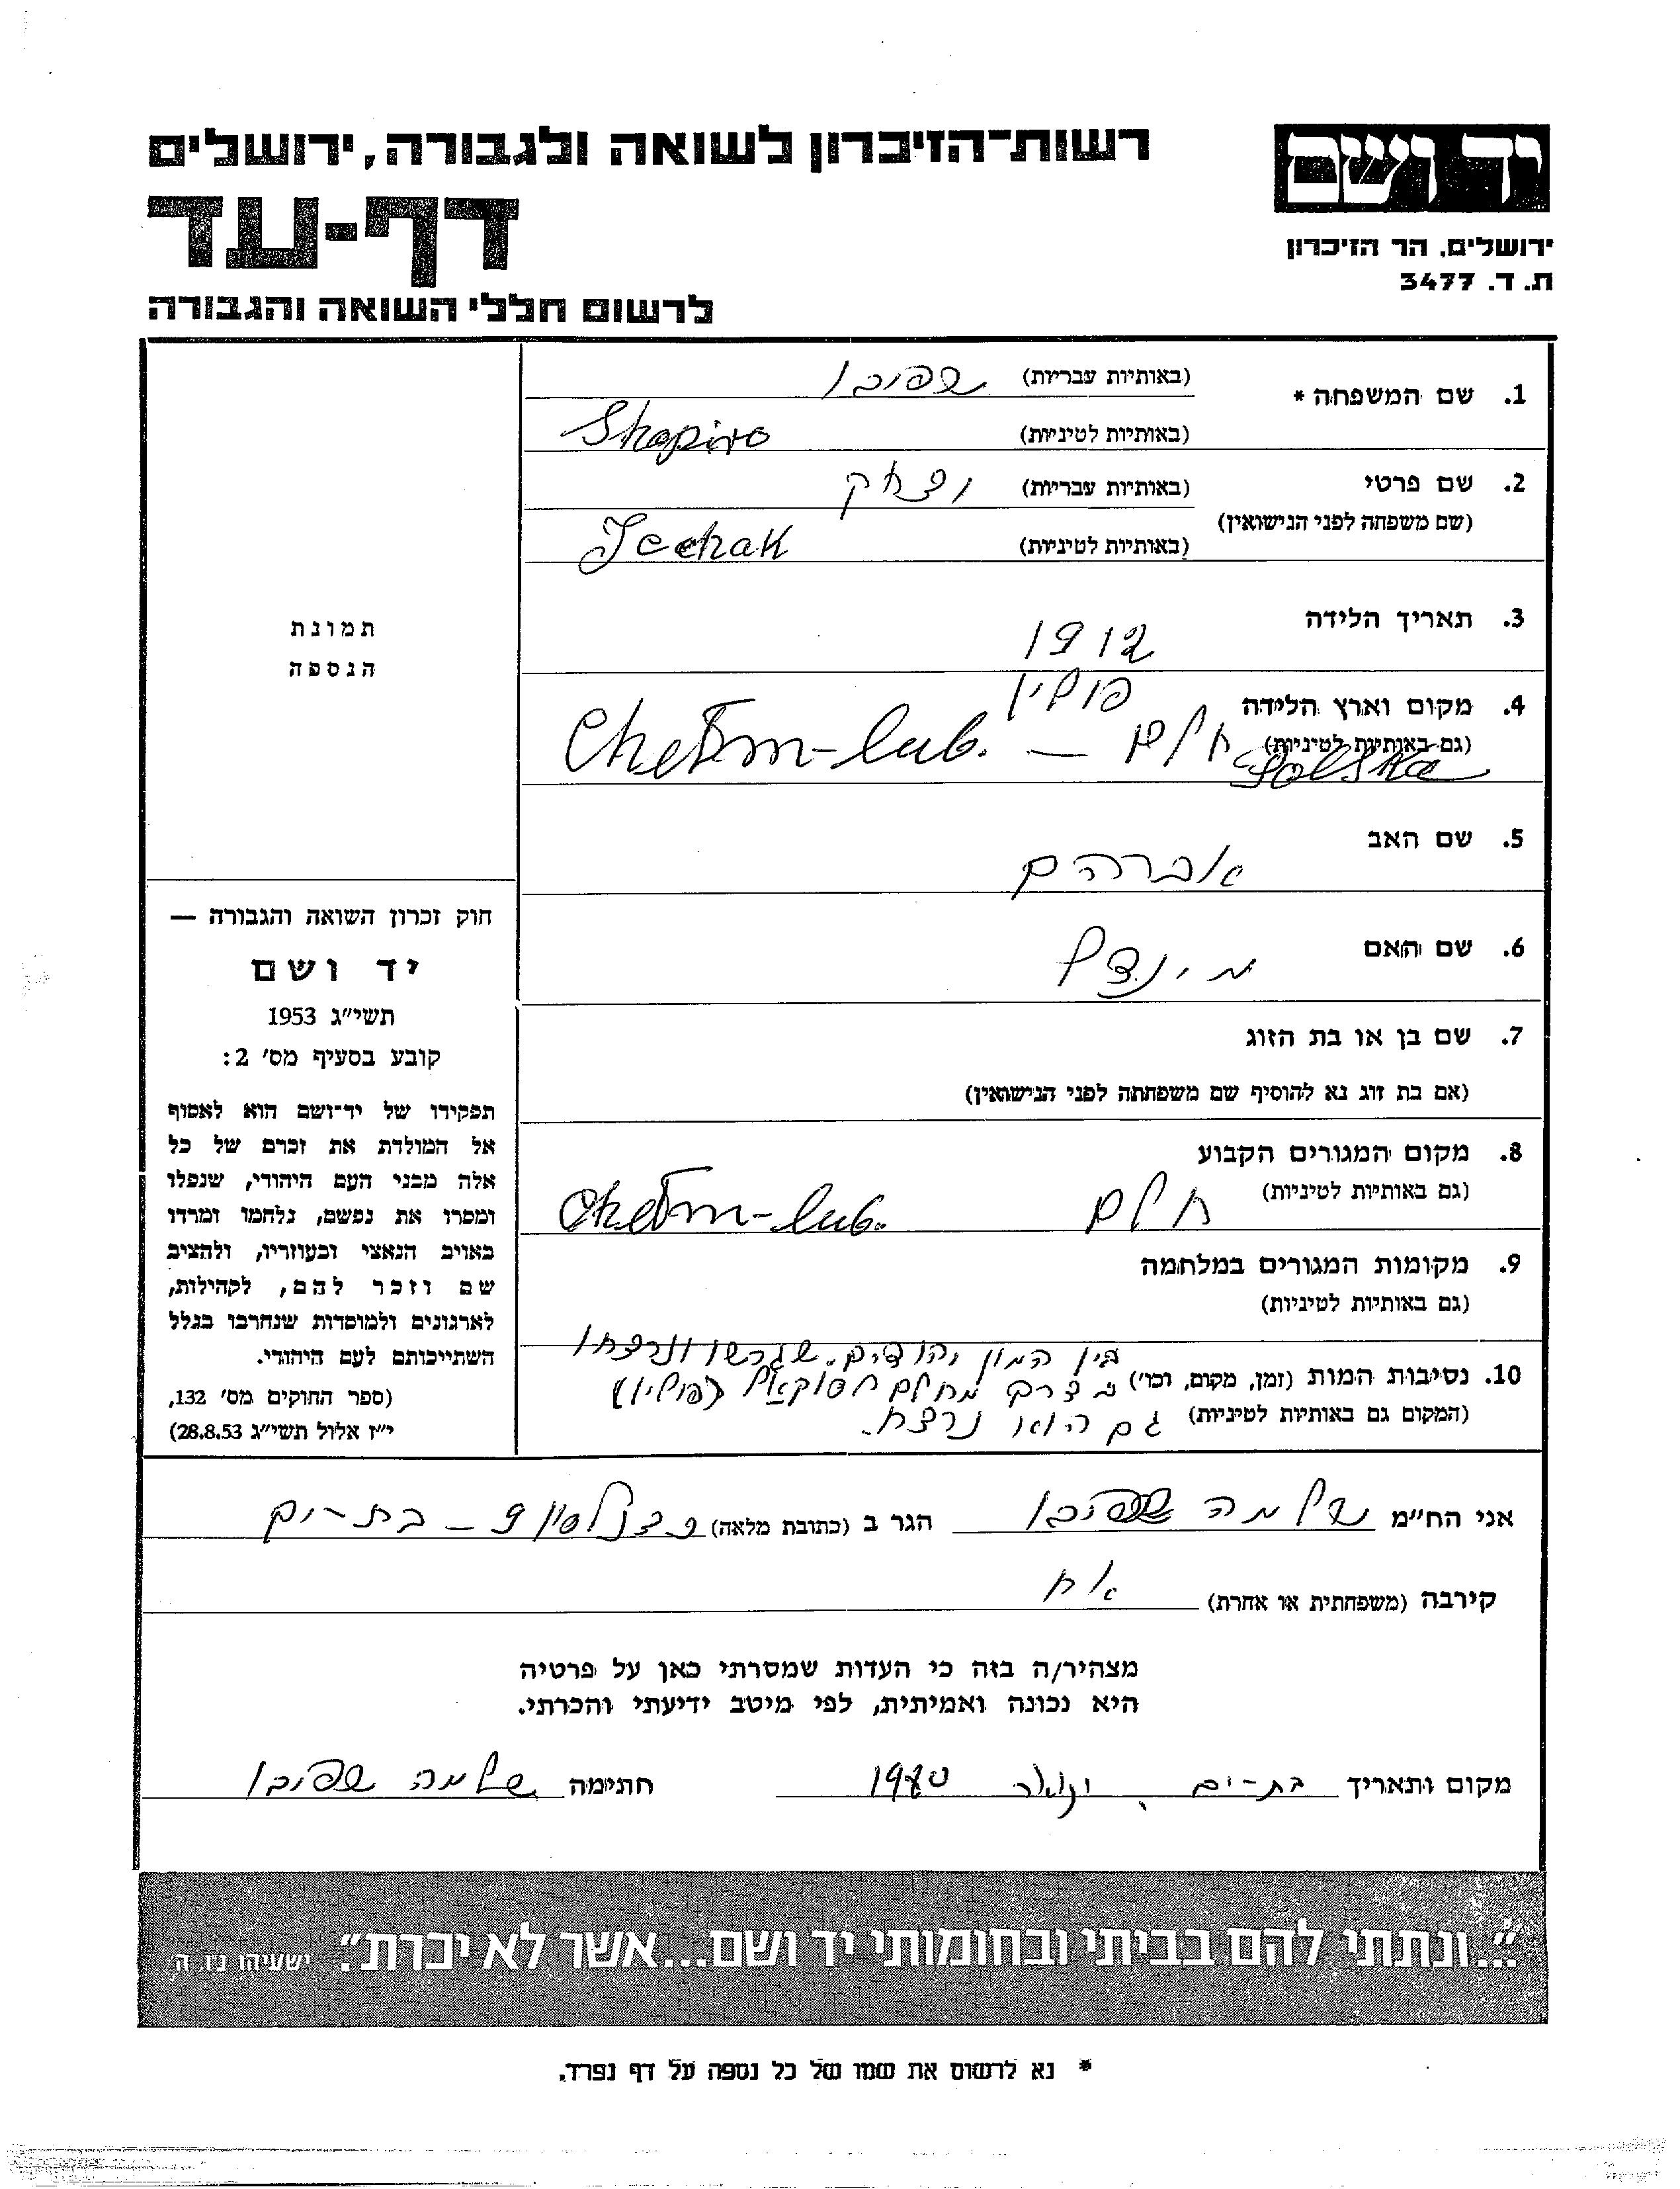 יד ושם
ירושלים, הר הזיכרון
ת.ד. 3477
רשות-הזיכרון לשואה ולגבורה, ירושלים
דף-עד
לרשום חללי השואה והגבורה
1. שם המשפחה *
(באותיות עבריות) שפירו
(באותיות לטיניות) Shapiro
2. שם פרטי
(שם משפחה לפני הנישואין)
(באותיות עבריות) יצחק
(באותיות לטיניות) Icchak
3. תאריך הלידה 1912
4. מקום וארץ הלידה
(גם באותיות לטיניות)
פולין
חלם — Chełm-lub.
Polska
5. שם האב אברהם
6. שם האם מינדל
7. שם בן או בת הזוג
(אם בת זוג נא להוסיף שם משפחתה לפני הנישואין)
8. מקום המגורים הקבוע
(גם באותיות לטיניות) חלם Chełm-lub.
9. מקומות המגורים במלחמה
(גם באותיות לטיניות)
10. נסיבות המות (זמן, מקום, וכו')
(המקום גם באותיות לטיניות)
בין המון יהודים. שגרשו ונרצחו
בדרך מחלם לסוקאל (פולין)
גם הוא נרצח.
תמונת
הנספה
חוק זכרון השואה והגבורה —
יד ושם
תשי"ג 1953
קובע בסעיף מס' 2:
תפקידו של יד-ושם הוא לאסוף
אל המולדת את זכרם של כל
אלה מבני העם היהודי, שנפלו
ומסרו את נפשם, נלחמו ומרדו
באויב הנאצי ובעוזריו, ולהציב
שם וזכר להם, לקהילות,
לארגונים ולמוסדות שנחרבו בגלל
השתייכותם לעם היהודי.
(ספר החוקים מס' 132,
י"ז אלול תשי"ג 28.8.53)
אני הח"מ שלמה שפירו הגר ב (כתובת מלאה) כצנלסון 9 – בת-ים
קירבה (משפחתית או אחרת) אח
מצהיר/ה בזה כי העדות שמסרתי כאן על פרטיה
היא נכונה ואמיתית, לפי מיטב ידיעתי והכרתי.
מקום ותאריך בת-ים, ינואר 1980 חתימה שלמה שפירו
"...ונתתי להם בביתי ובחומותי יד ושם...אשר לא יכרת". ישעיהו נו ה
* נא לרשום את שמו של כל נספה על דף נפרד.